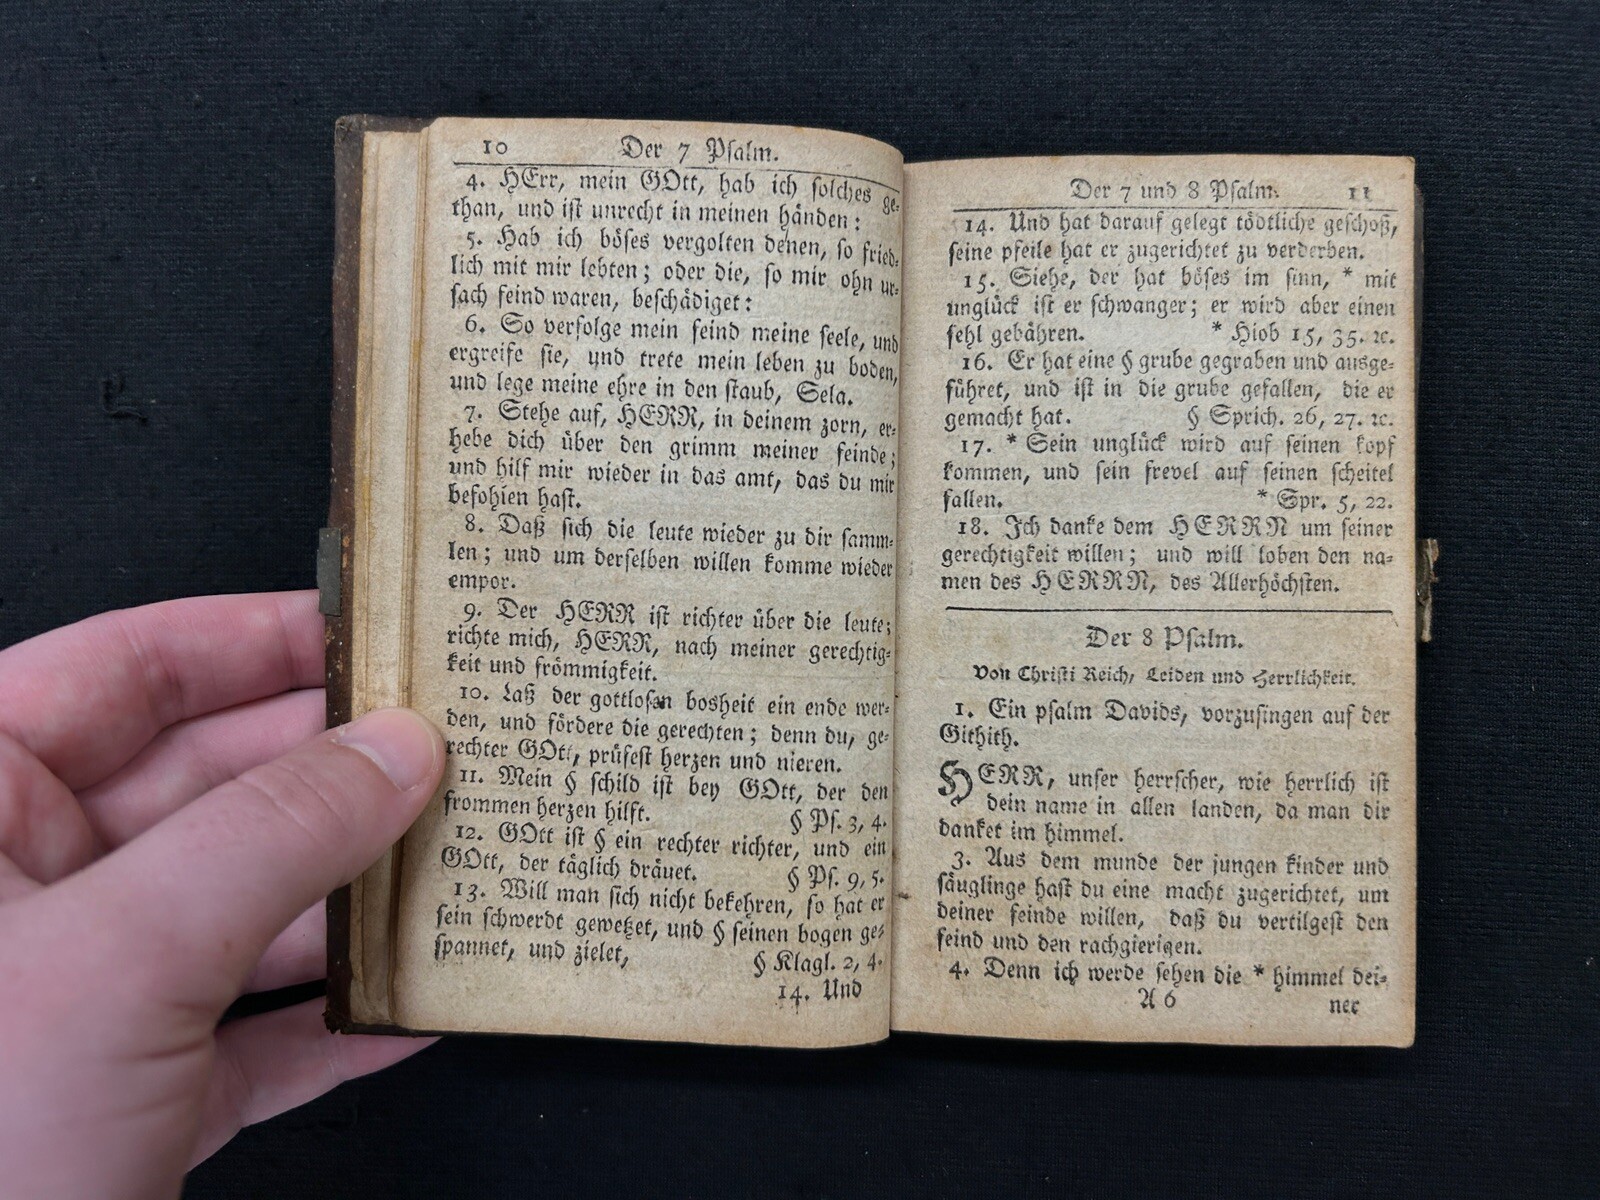 10 Der 7 Psalm.
4. HErr, mein GOtt, hab ich solches ge-
than, und ist unrecht in meinen händen:
5. Hab ich böses vergolten denen, so fried-
lich mit mir lebten; oder die, so mir ohn ur-
sach feind waren, beschädiget:
6. So verfolge mein feind meine seele, und
ergreife sie, und trete mein leben zu boden,
und lege meine ehre in den staub, Sela.
7. Stehe auf, HERR, in deinem zorn, er-
hebe dich über den grimm meiner feinde;
und hilf mir wieder in das amt, das du mir
befohlen hast.
8. Daß sich die leute wieder zu dir samm-
len; und um derselben willen komme wieder
empor.
9. Der HERR ist richter über die leute;
richte mich, HERR, nach meiner gerechtig-
keit und frömmigkeit.
10. Laß der gottlosen bosheit ein ende wer-
den, und fördere die gerechten; denn du, ge-
rechter GOtt, prüfest herzen und nieren.
11. Mein § schild ist bey GOtt, der den
frommen herzen hilft. § Ps. 3, 4.
12. GOtt ist § ein rechter richter, und ein
GOtt, der täglich dräuet. § Ps. 9, 5.
13. Will man sich nicht bekehren, so hat er
sein schwerdt gewetzet, und § seinen bogen ge-
spannet, und zielet, § Klagl. 2, 4.
14. Und
Der 7 und 8 Psalm. 11
14. Und hat darauf gelegt tödtliche geschoß,
seine pfeile hat er zugerichtet zu verderben.
15. Siehe, der hat böses im sinn, * mit
unglück ist er schwanger; er wird aber einen
fehl gebähren. * Hiob 15, 35. ꝛc.
16. Er hat eine § grube gegraben und ausge-
führet, und ist in die grube gefallen, die er
gemacht hat. § Sprich. 26, 27. ꝛc.
17. * Sein unglück wird auf seinen kopf
kommen, und sein frevel auf seinen scheitel
fallen. * Spr. 5, 22.
18. Ich danke dem HERRN um seiner
gerechtigkeit willen; und will loben den na-
men des HERRN, des Allerhöchsten.
Der 8 Psalm.
Von Christi Reich, Leiden und Herrlichkeit.
1. Ein psalm Davids, vorzusingen auf der
Githith.
HERR, unser herrscher, wie herrlich ist
dein name in allen landen, da man dir
danket im himmel.
3. Aus dem munde der jungen kinder und
säuglinge hast du eine macht zugerichtet, um
deiner feinde willen, daß du vertilgest den
feind und den rachgierigen.
4. Denn ich werde sehen die * himmel dei-
A 6 ner